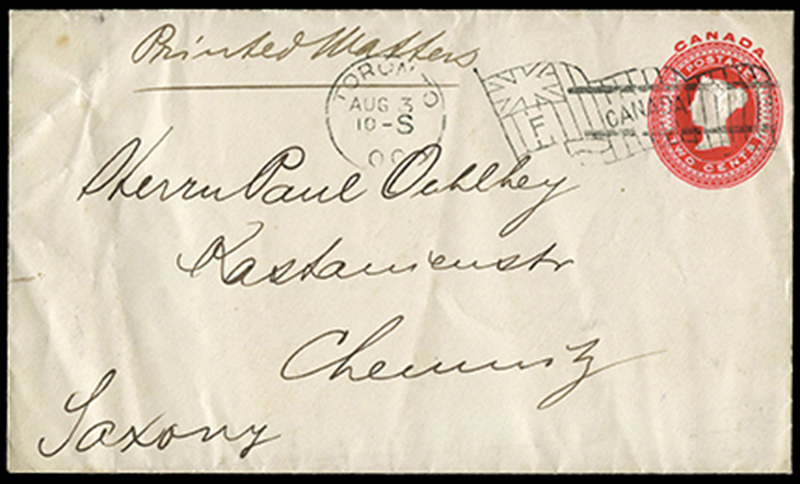 Printed Matters
CANADA
POSTAGE
TWO CENTS
TORONTO
AUG 3
10-S
00
F
CANADA
Herrn Paul
Kastanienstr
Chemnitz
Saxony